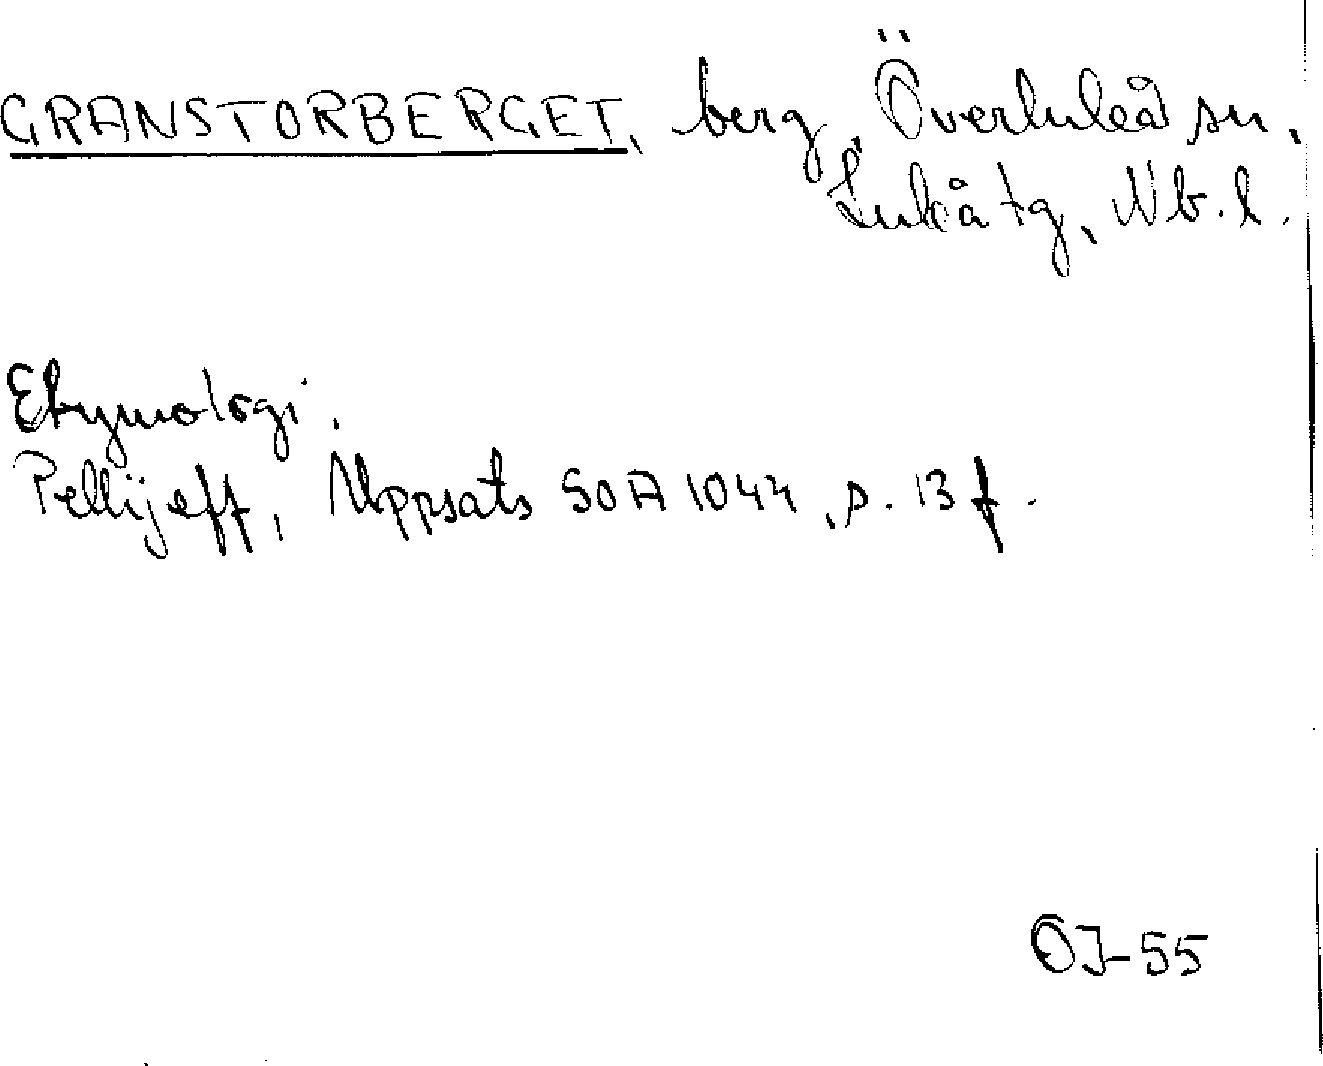 GRANSTORBERGET, berg, Överluleå sn,
Luleå tg, Nb. l.
Etymologi.
Pellijeff, Uppsats SOA 1044, s. 13 f.
OJ-55